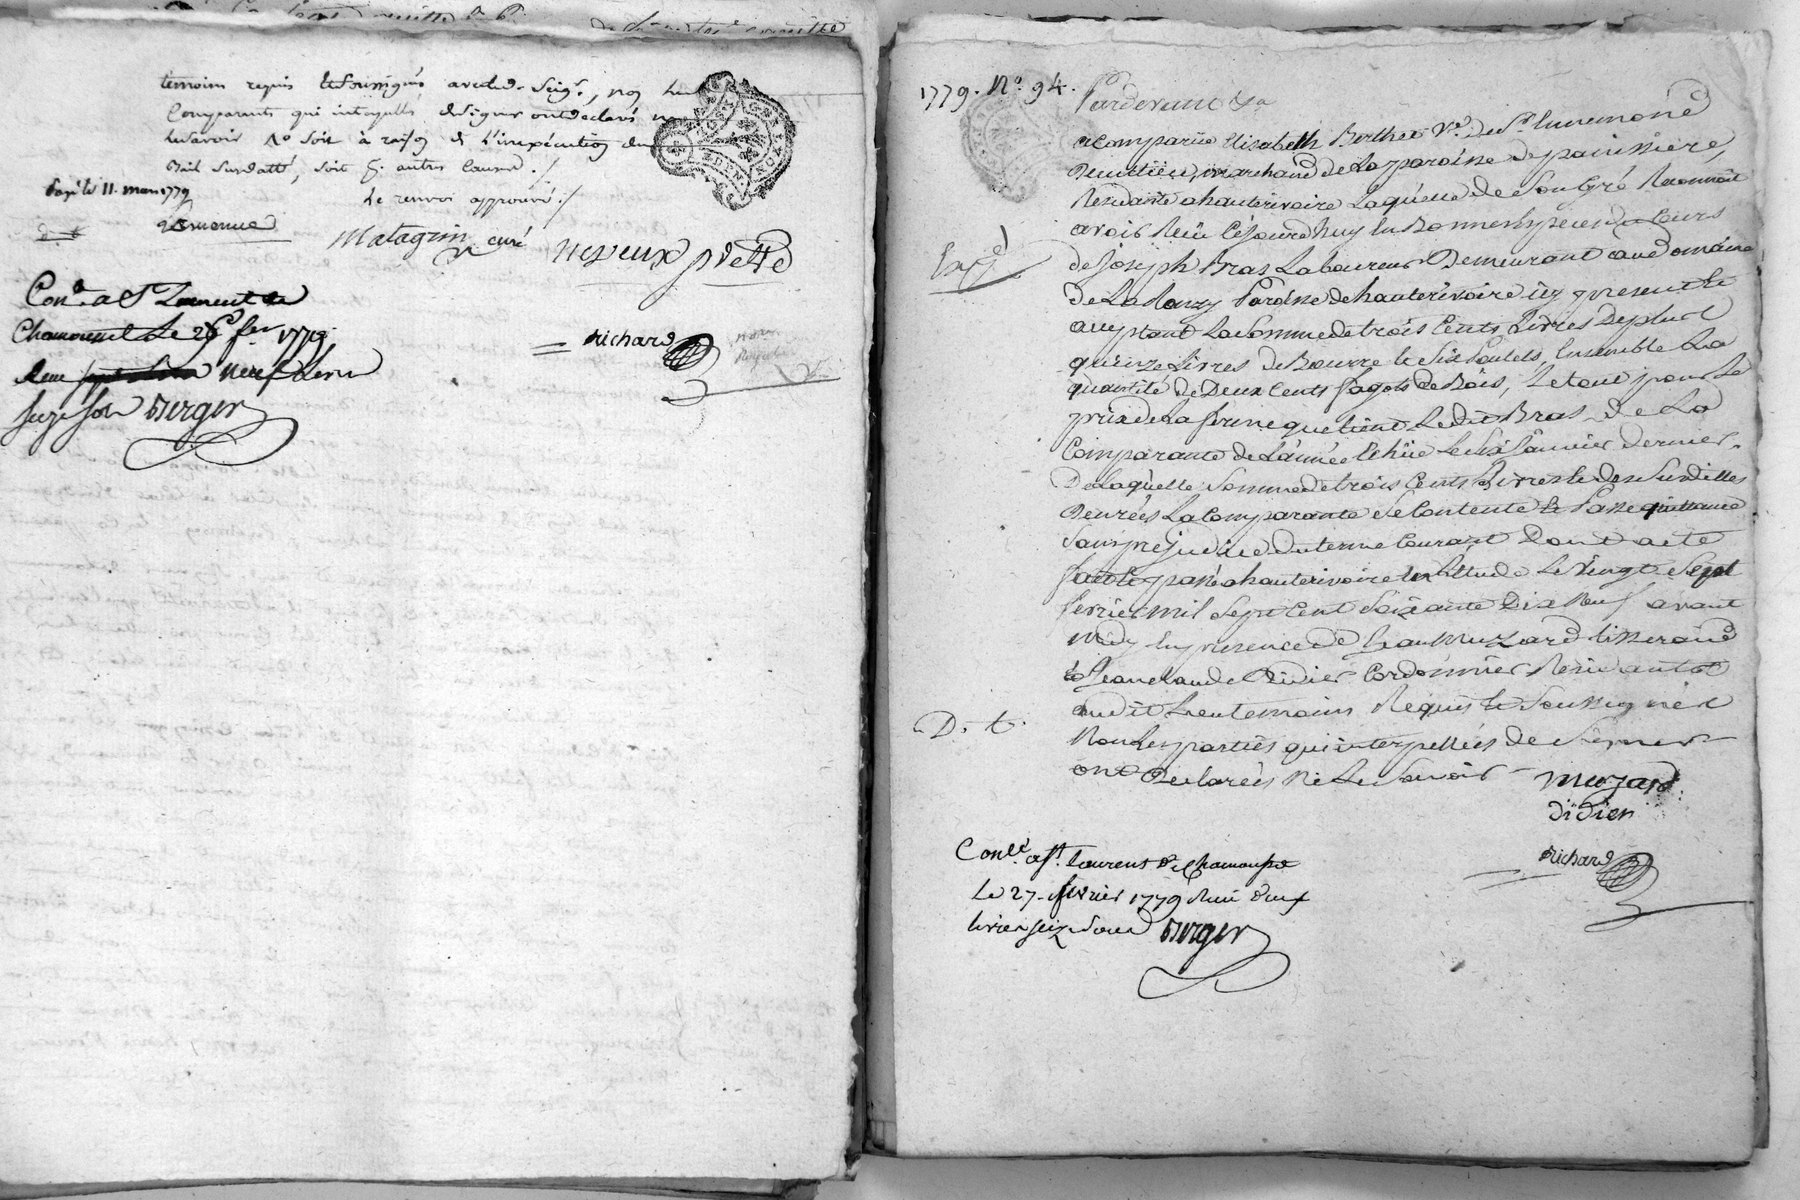 temoins requis et soussignés avec led. Seigr., non les
comparants qui interpellés de signer ont déclaré ne
le savoir No soit à raison de l'inexécution du
Bail susdatté, soit p. autres causes ./
Le renvoi approuvé ./
Expé le 11. mars 1779
Matagrin curé
neyeux prettre
Richard
Con.é a St Laurent de
Chamousset Le 26 fer 1779
Reçu neuf livres
seize sols Berger
1779. No. 94.
Pardevant &a
a Comparüe Elisabeth Berthet Ve. de Sr.
marchand de La paroisse de paissière,
Residante a hauterivoire Laquelle de Son Gré Reconnoit
avoir Reçu Cejourd'huy En Bonnes Especes de Cours
de Joseph Bras Laboureur Demeurant au domaine
de Paroisse de hauterivoire icy present et
acceptant La Somme de trois Cents Livres De plus
quinze Livres de Beurre et Six Poulets, Ensemble La
quantité de Deux Cents fagots de Bois, Le tout pour Le
prix de La ferme que tient Ledit Bras de La
Comparante de L'année Echüe Le Six Janvier dernier.
De Laquelle Somme de trois Cents Livres et des Susdittes
Denrées La Comparante Se Contente et Passe quittance
Sans prejudice du terme Courant Dont acte
fait et passé a hauterivoire En L'Etude Le Vingt Sept
fevrier mil Sept Cent Soixante Dix Neuf avant
midy En presence de Jean Muzard tisserand
& Jean Claude Didier Cordonnier Residants
audit Lieu temoins Requis et Soussignés
Non Les parties qui interpellées de Signer
ont Declarées Ne Le Savoir
D. t.
muzard
didier
Richard
Conlé. a St. Laurent de Chamousset
Le 27. fevrier 1779 Reçu deux
livres seize sous Berger